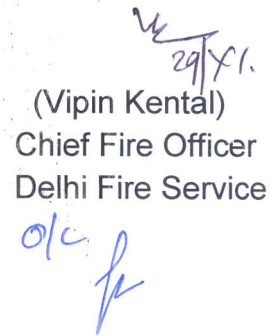 29/XI.
(Vipin Kental)
Chief Fire Officer
Delhi Fire Service
O/c